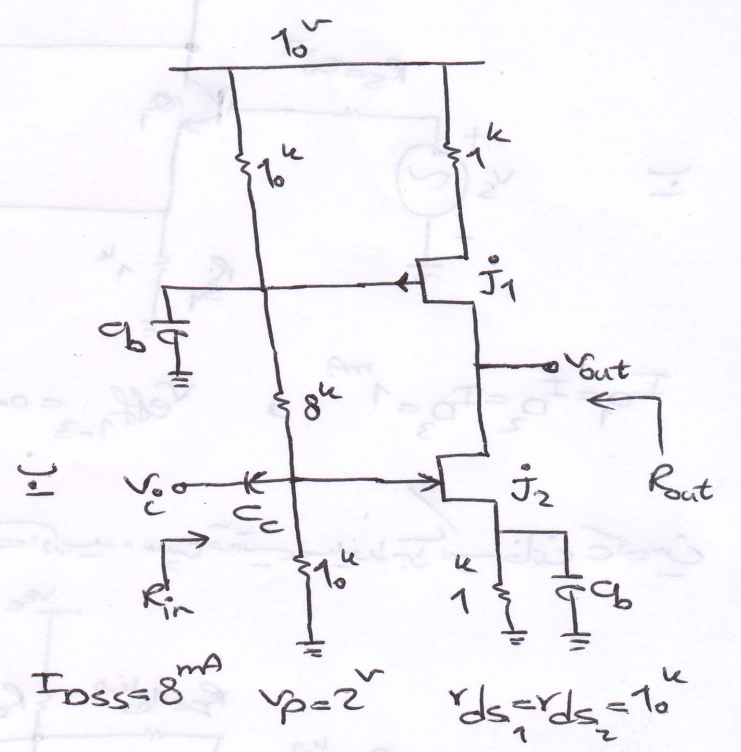 10v
10k
1k
J1
Cb
8k
Vout
Vi
Cc
J2
Rout
Rin
10k
1k
Cb
IDSS=8mA Vp=2v rds1=rds2=10k